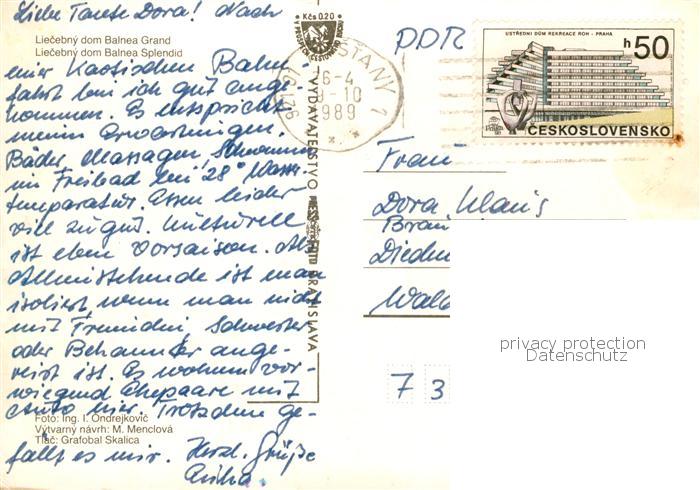 Liebe Tante Dora! Nach
Liečebný dom Balnea Grand
Liečebný dom Balnea Splendid
einer Kaotischen Bahn-
fahrt bin ich gut ange-
kommen. Es entspricht
meinen Erwartungen.
Bäder, Massagen, Schwimmen
im Freibad bei 28° Wasser-
temperatur. Essen leider
viel zu gut. Kulturell
ist eben Vorsaison. Als
Alleinstehende ist man
isoliert, wenn man nicht
mit Freundin, Schwester
oder Bekannter ange-
reist ist. Es wohnen vor-
wiegend Ehepaare mit
Auto hier. Trotzdem ge-
Foto: Ing. I. Ondrejkovič
Výtvarný návrh: M. Menclová
Tlač: Grafobal Skalica
fällt es mir. Herzl. Grüße
Kčs 0,20
VYDAVATEĽSTVO
BRATISLAVA
921 01
PIEŠŤANY 1
1989
DDR
ÚSTŘEDNÍ DŮM REKREACE ROH - PRAHA
h50
ČESKOSLOVENSKO
Frau
Dora Klaus
Brau
Dieden
Wald
privacy protection
Datenschutz
7 3